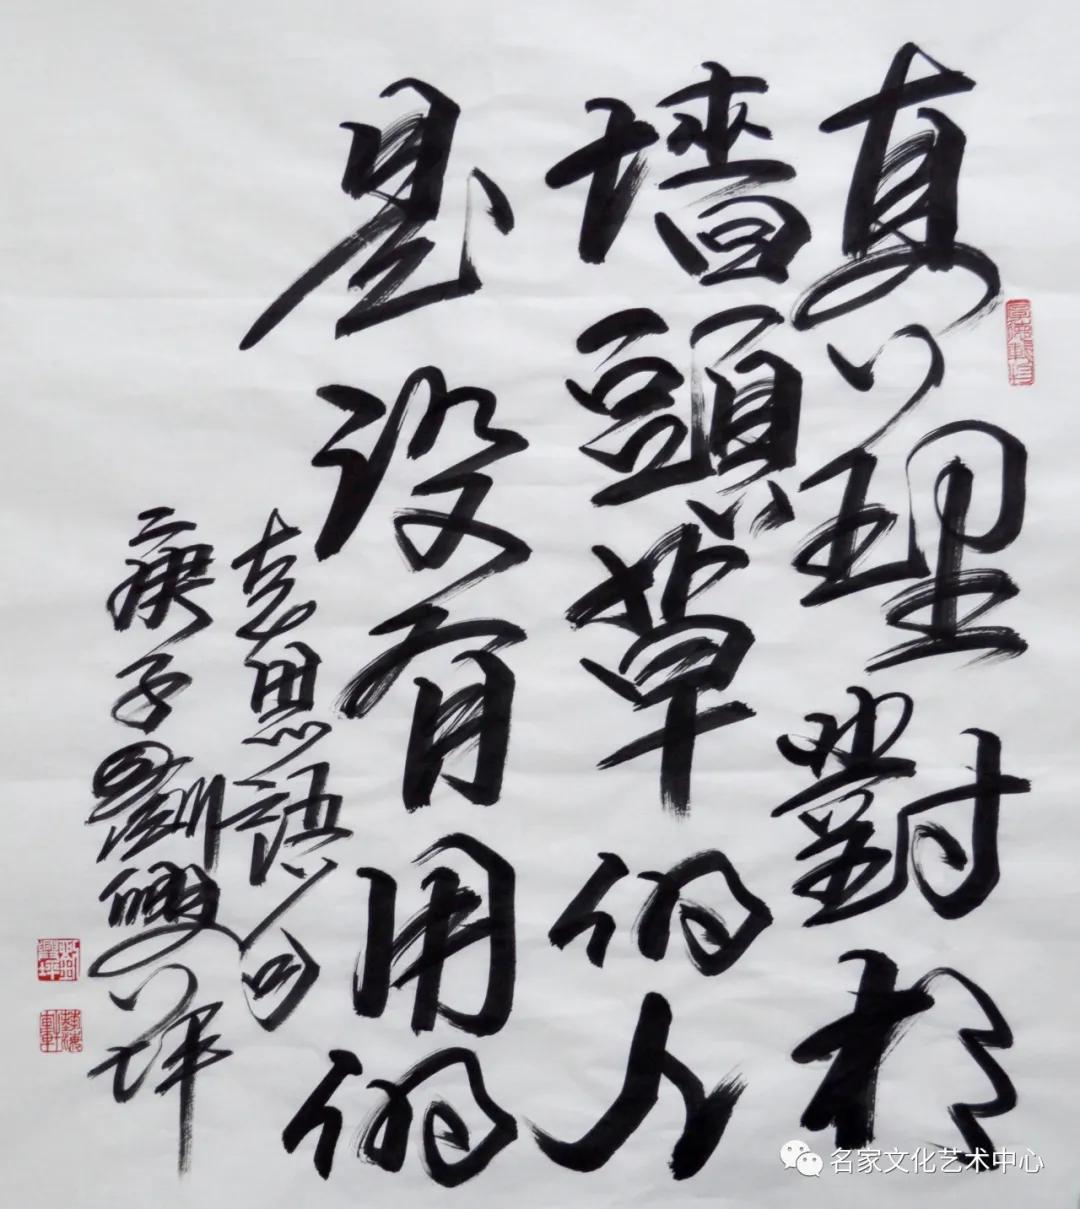 真理對於
墻頭草的人
是没有用的
思語句
庚子劉坪
名家文化艺术中心